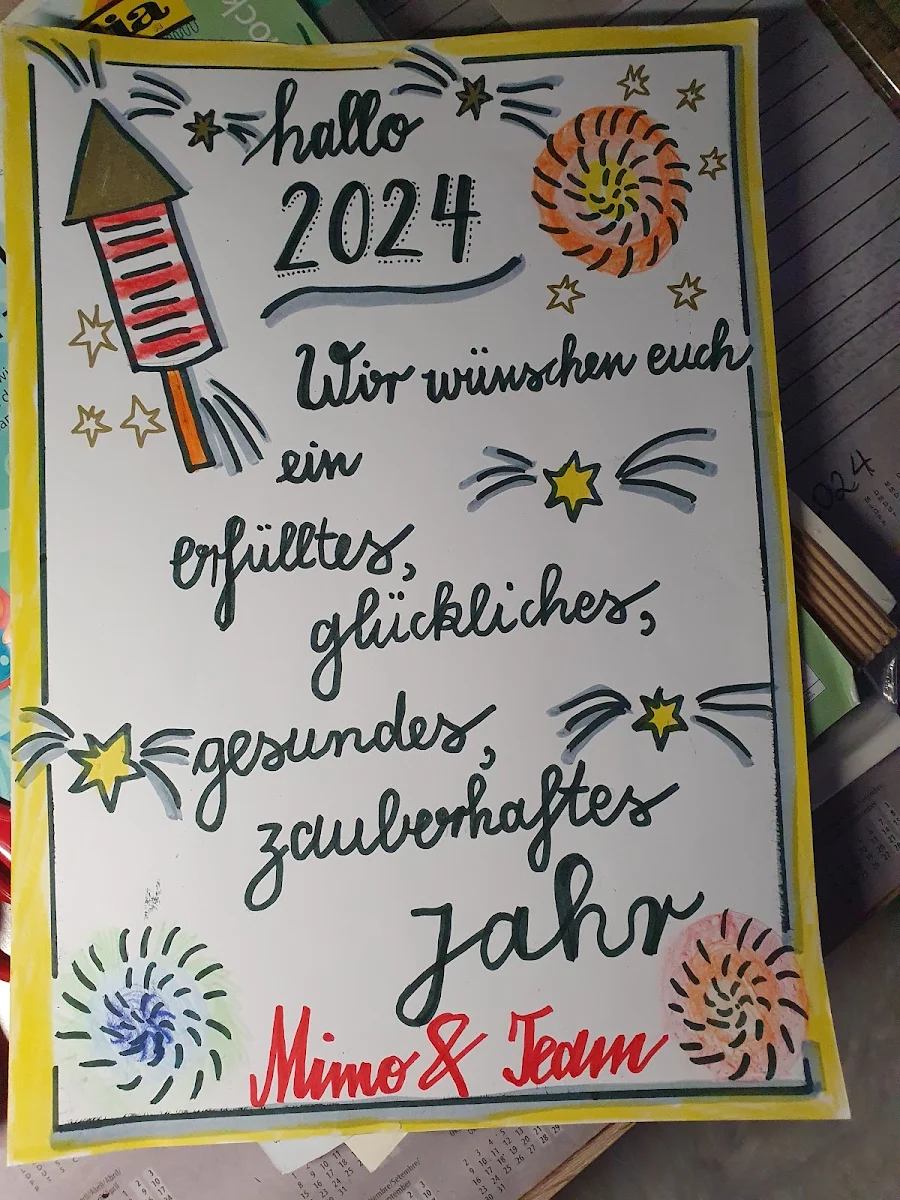 hallo
2024
Wir wünschen euch
ein
erfülltes,
glückliches,
gesundes,
zauberhaftes
Jahr
Mimo & Team
024